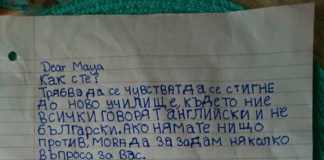 Dear Maya
Как сте?
Трябва да се чувстватда се стигне
до ново училище, където ние
всички говорят английски и не
български. Ако нямате нищо
против, мога да задам няколко
въпроса за вас.